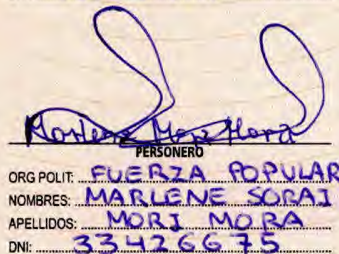 Marlene Mori Mora
PERSONERO
ORG POLIT: FUERZA POPULAR
NOMBRES: MARLENE SORAI
APELLIDOS: MORI MORA
DNI: 33426675